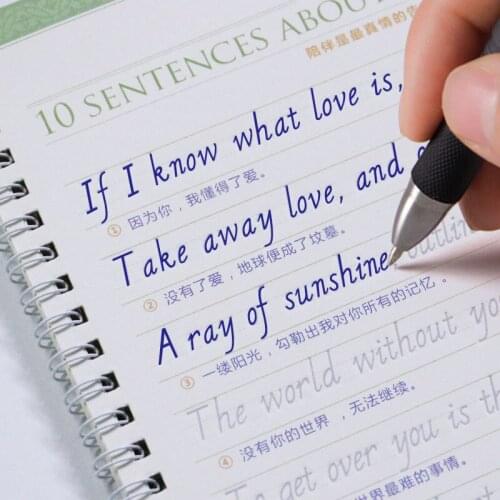 10 SENTENCES ABOU
陪伴是最真情的告
If I know what love is,
① 因为你，我懂得了爱。
Take away love, and
② 没有了爱，地球便成了坟墓。
A ray of sunshine outlin
③ 一缕阳光，勾勒出我对你所有的记忆。
The world without yo
④ 没有你的世界，无法继续。
To get over you is th
世界最难的事情。